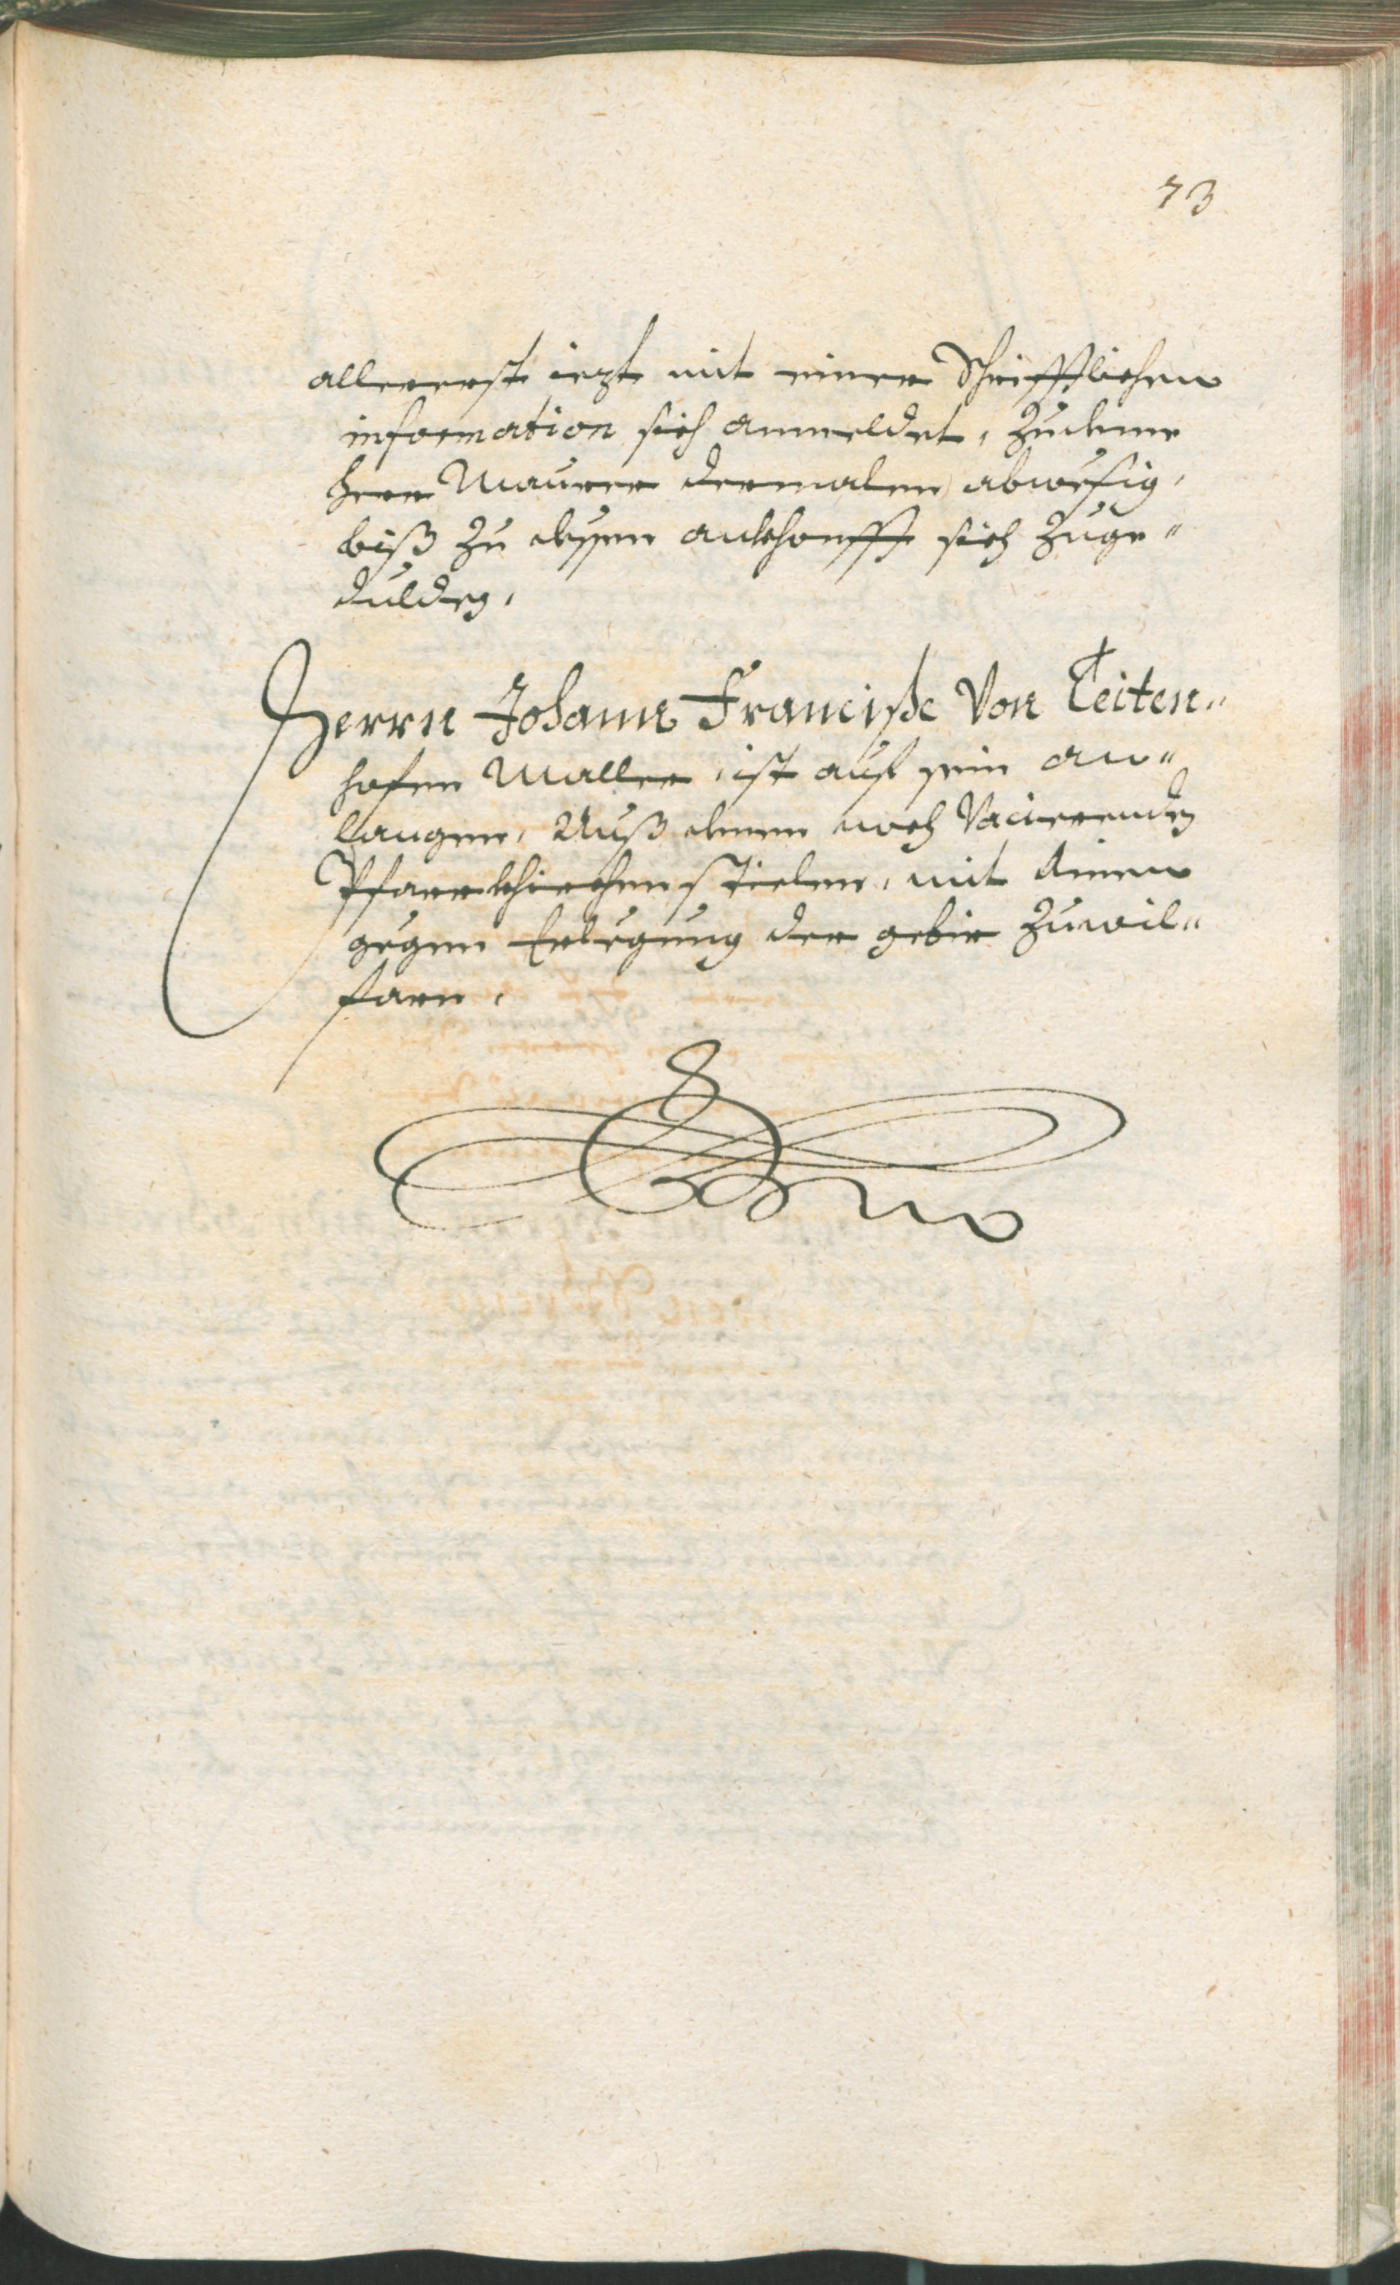 73
allererst iezt mit einer Schrifftlichen
information sich anmeldet, Zudeme
herr Maurer dermalen abwesig,
biß Zu dessen ankhonfft sich Zuge"
dulden,
Herrn Johann Francißc Von Leiten"
hofen Maller, ist auf sein an"
langen, Auß denen noch Vacierenden
Pfarrkhirchen stielen, mit Ainem
gegen Erlegung der gebir Zuwil"
faren,